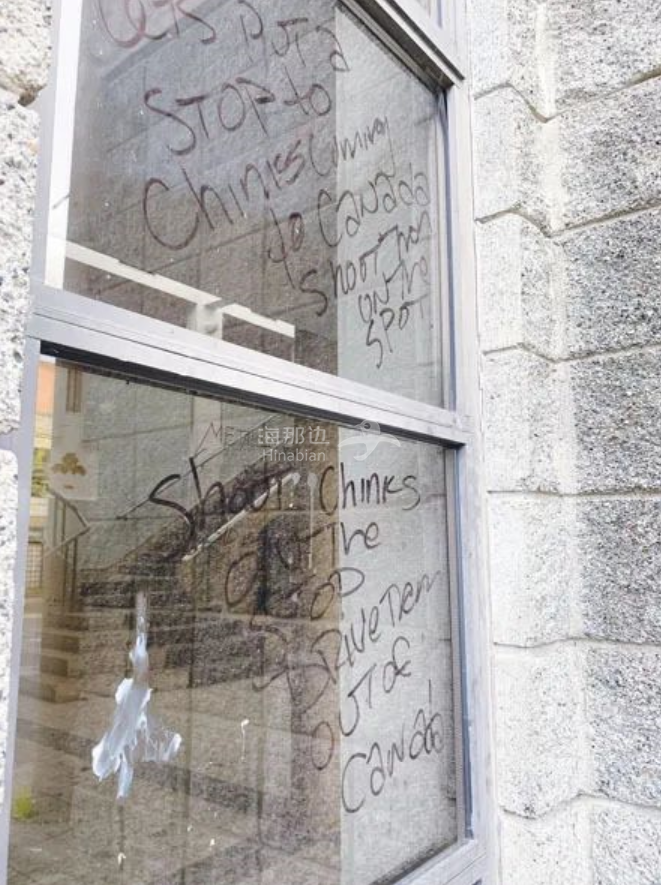 Lets put a
STOP to
Chinks Coming
to Canada
Shoot them
on the
SPOT
海那边
Hinabian
Shoot Chinks
ON The
DRIVE Them
OUT OF
CaNada